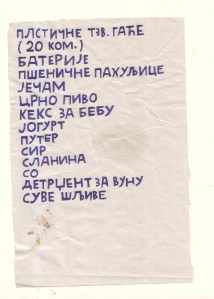 ПЛСТИЧНЕ ТЗВ. ГАЋЕ
(20 КОМ.)
БАТЕРИЈЕ
ПШЕНИЧНЕ ПАХУЉИЦЕ
ЈЕЧАМ
ЦРНО ПИВО
КЕКС ЗА БЕБУ
ЈОГУРТ
ПУТЕР
СИР
СЛАНИНА
СО
ДЕТРЏЕНТ ЗА ВУНУ
СУВЕ ШЉИВЕ